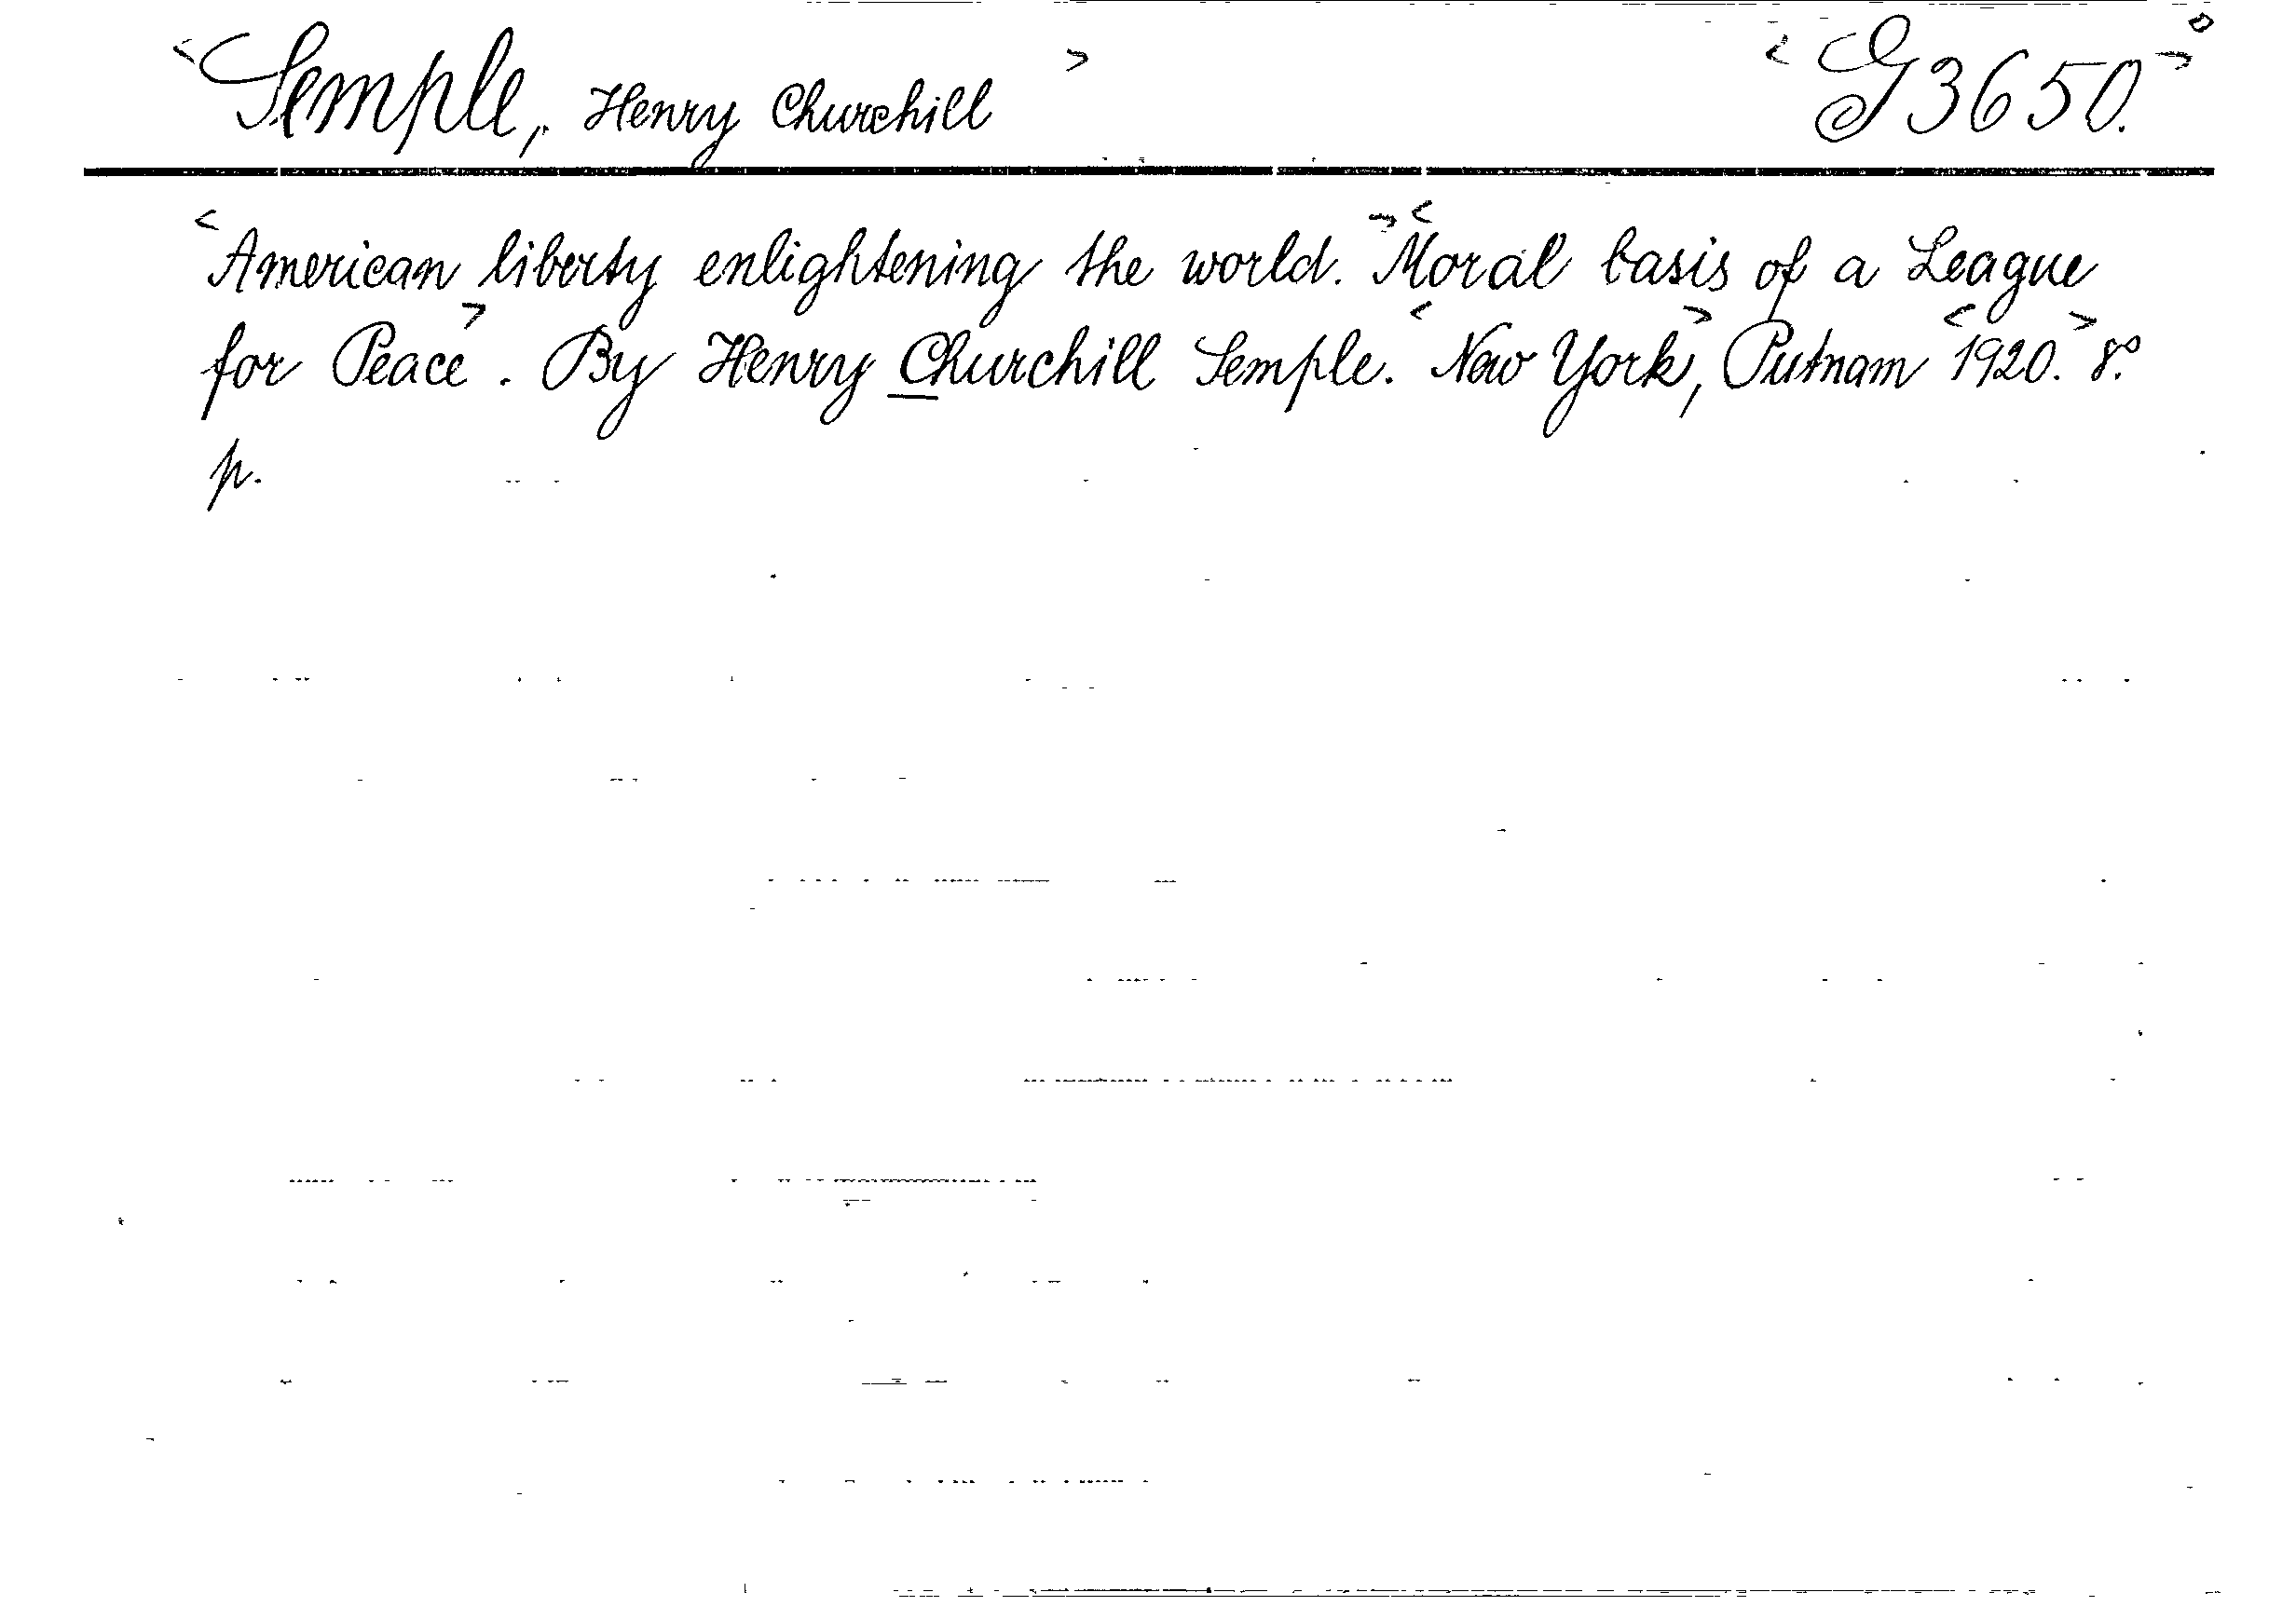 <Semple, Henry Churchill> <G3650.>
<American liberty enlightening the world.> <Moral basis of a League
for Peace>. By Henry Churchill Semple. <New York>, Putnam <1920.> 8.°
p.